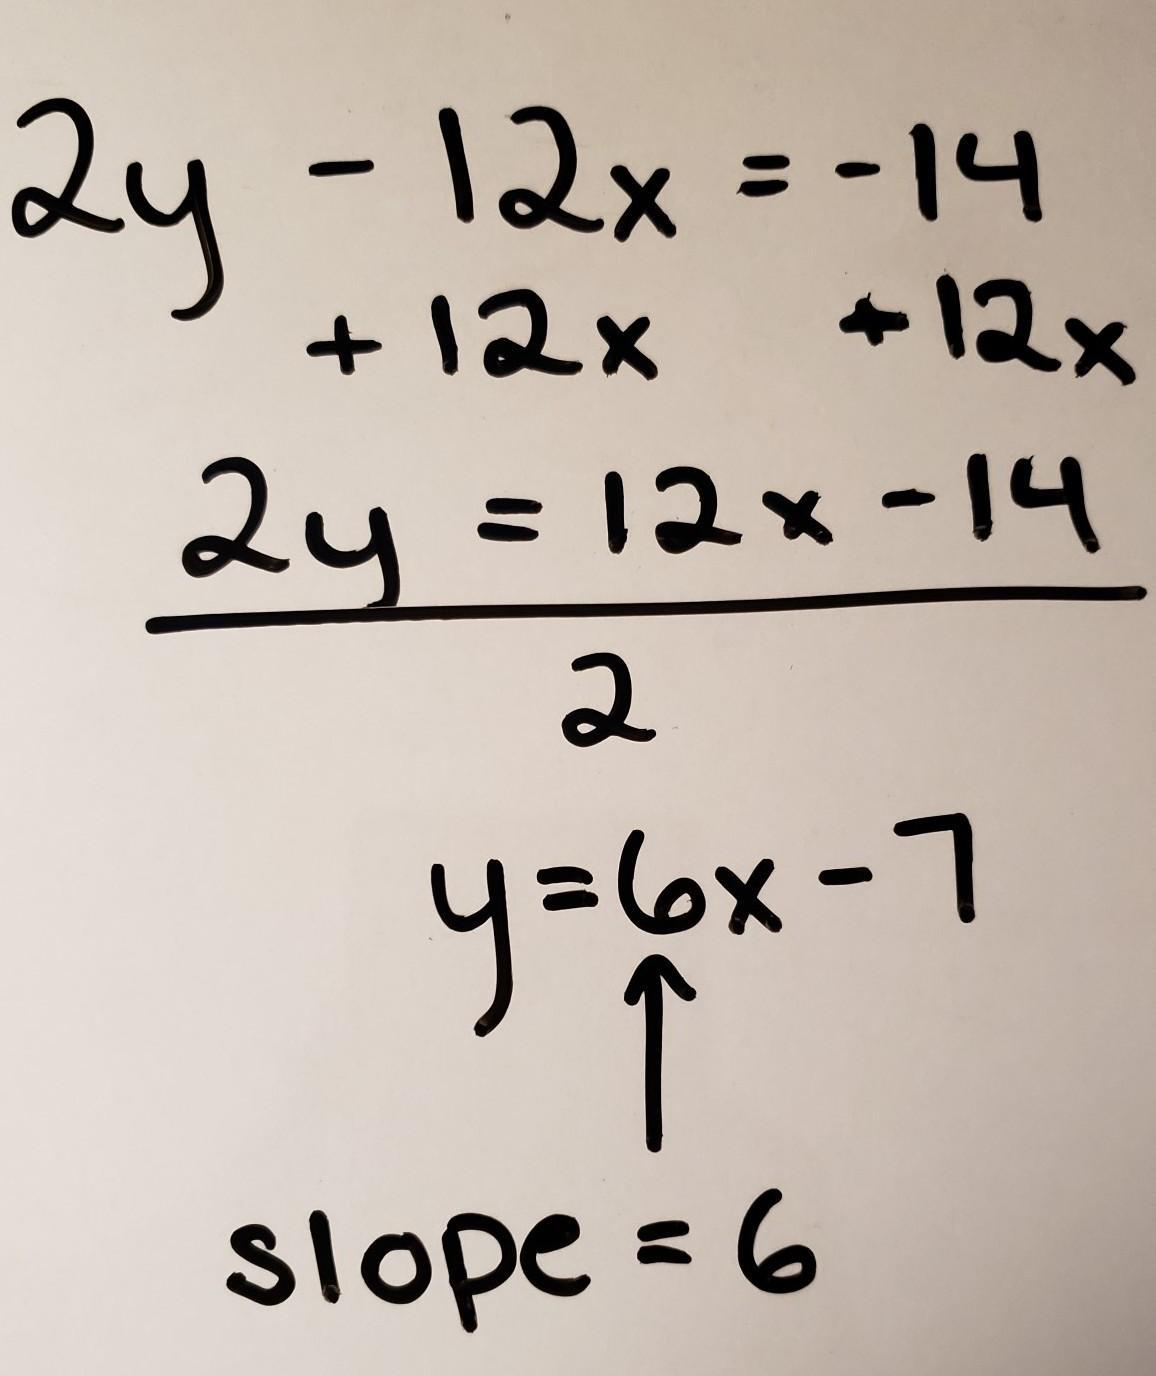 2y - 12x = -14
+ 12x + 12x
2y = 12x - 14
2
y = 6x - 7
slope = 6